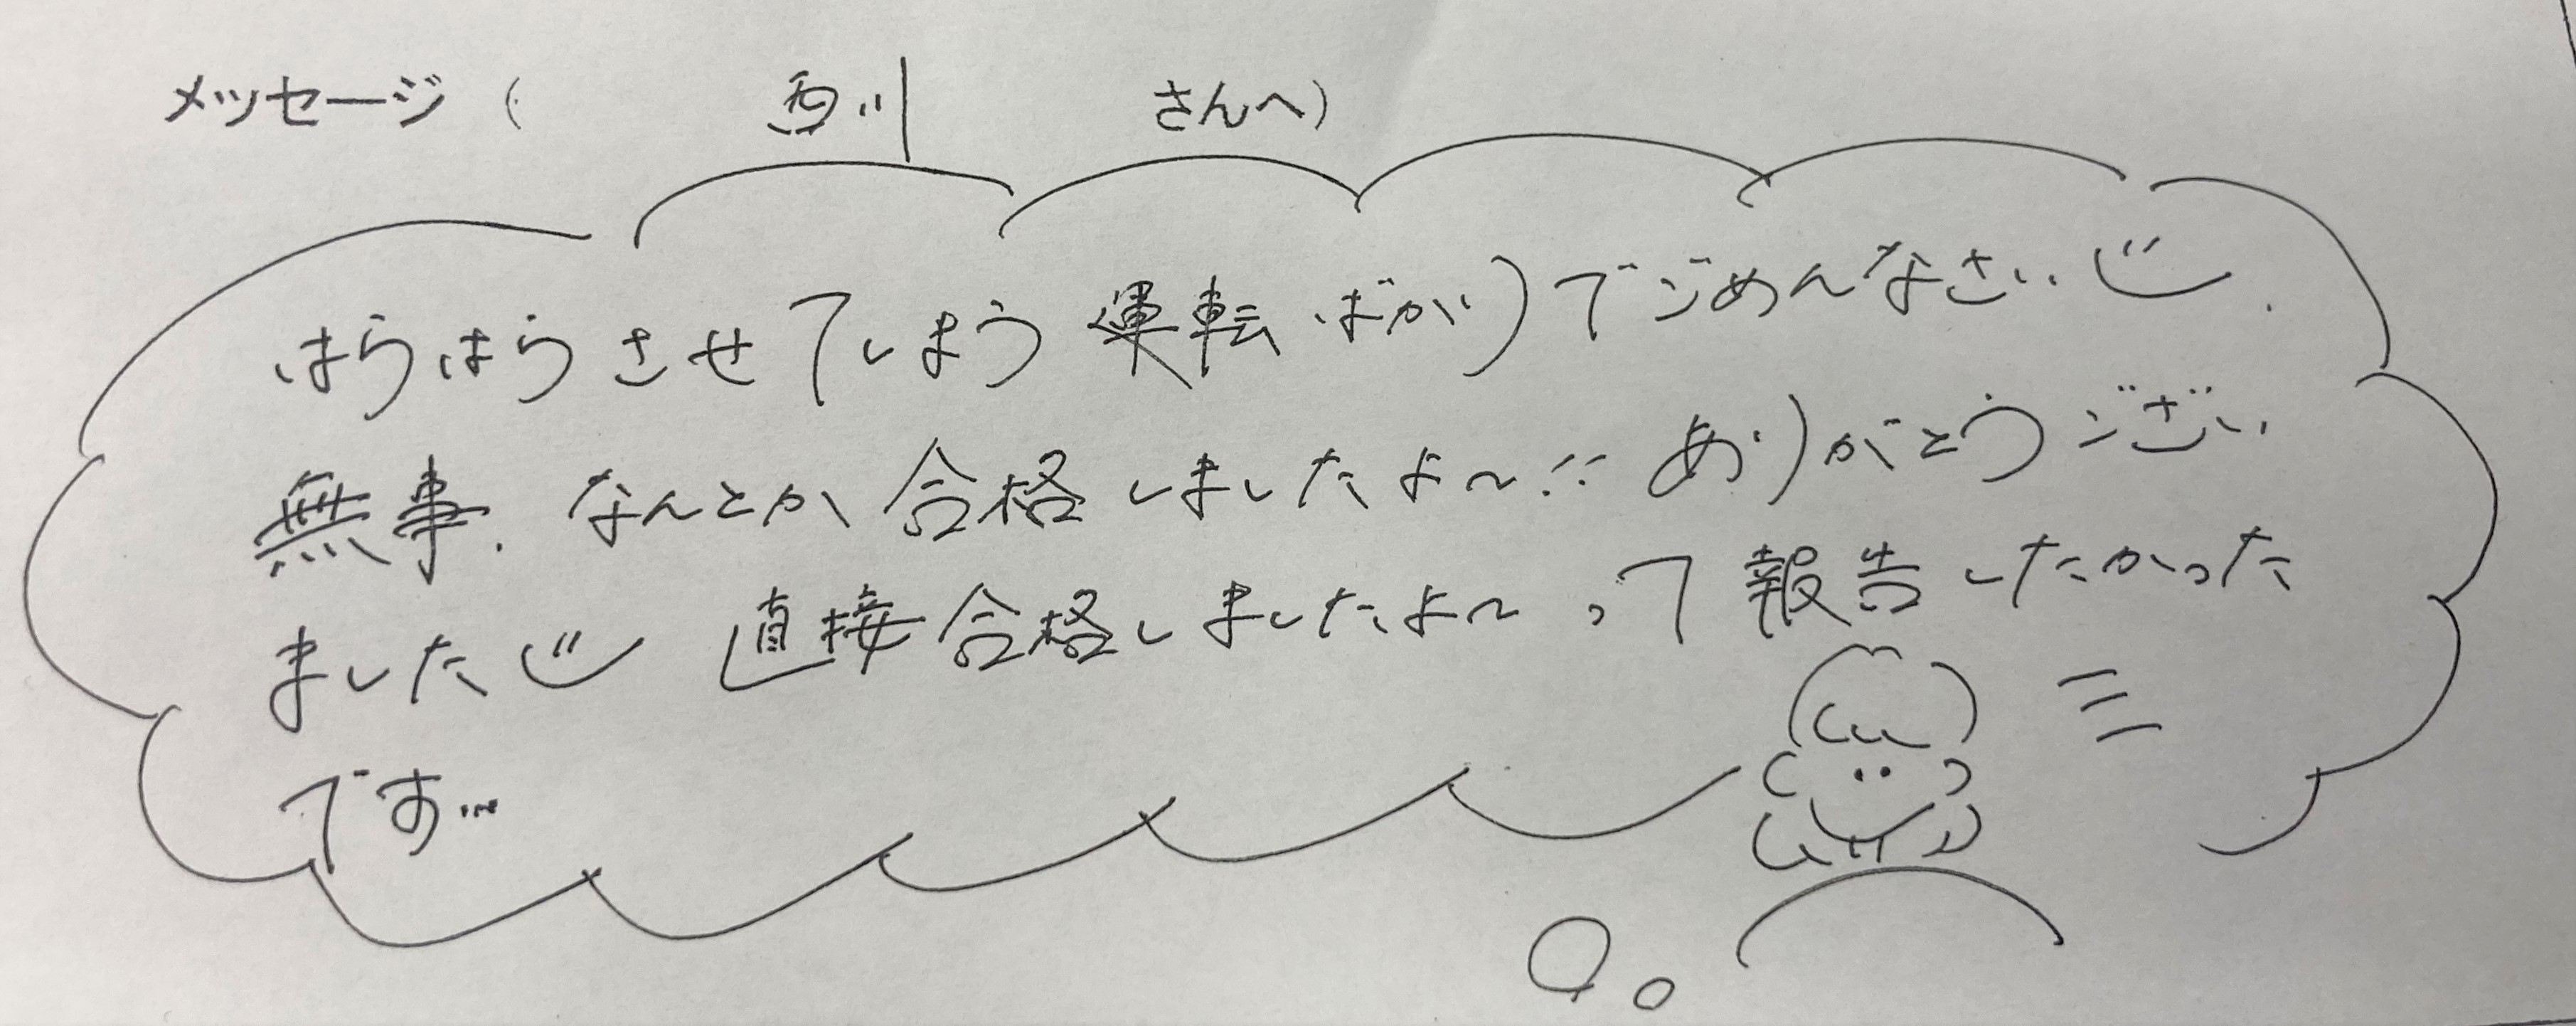 メッセージ ( 西川 さんへ)
はらはらさせてしまう運転ばかりでごめんなさい
無事、なんとか合格しましたよ〜!! ありがとうござい
ました 直接合格しましたよ〜って報告したかった
です…